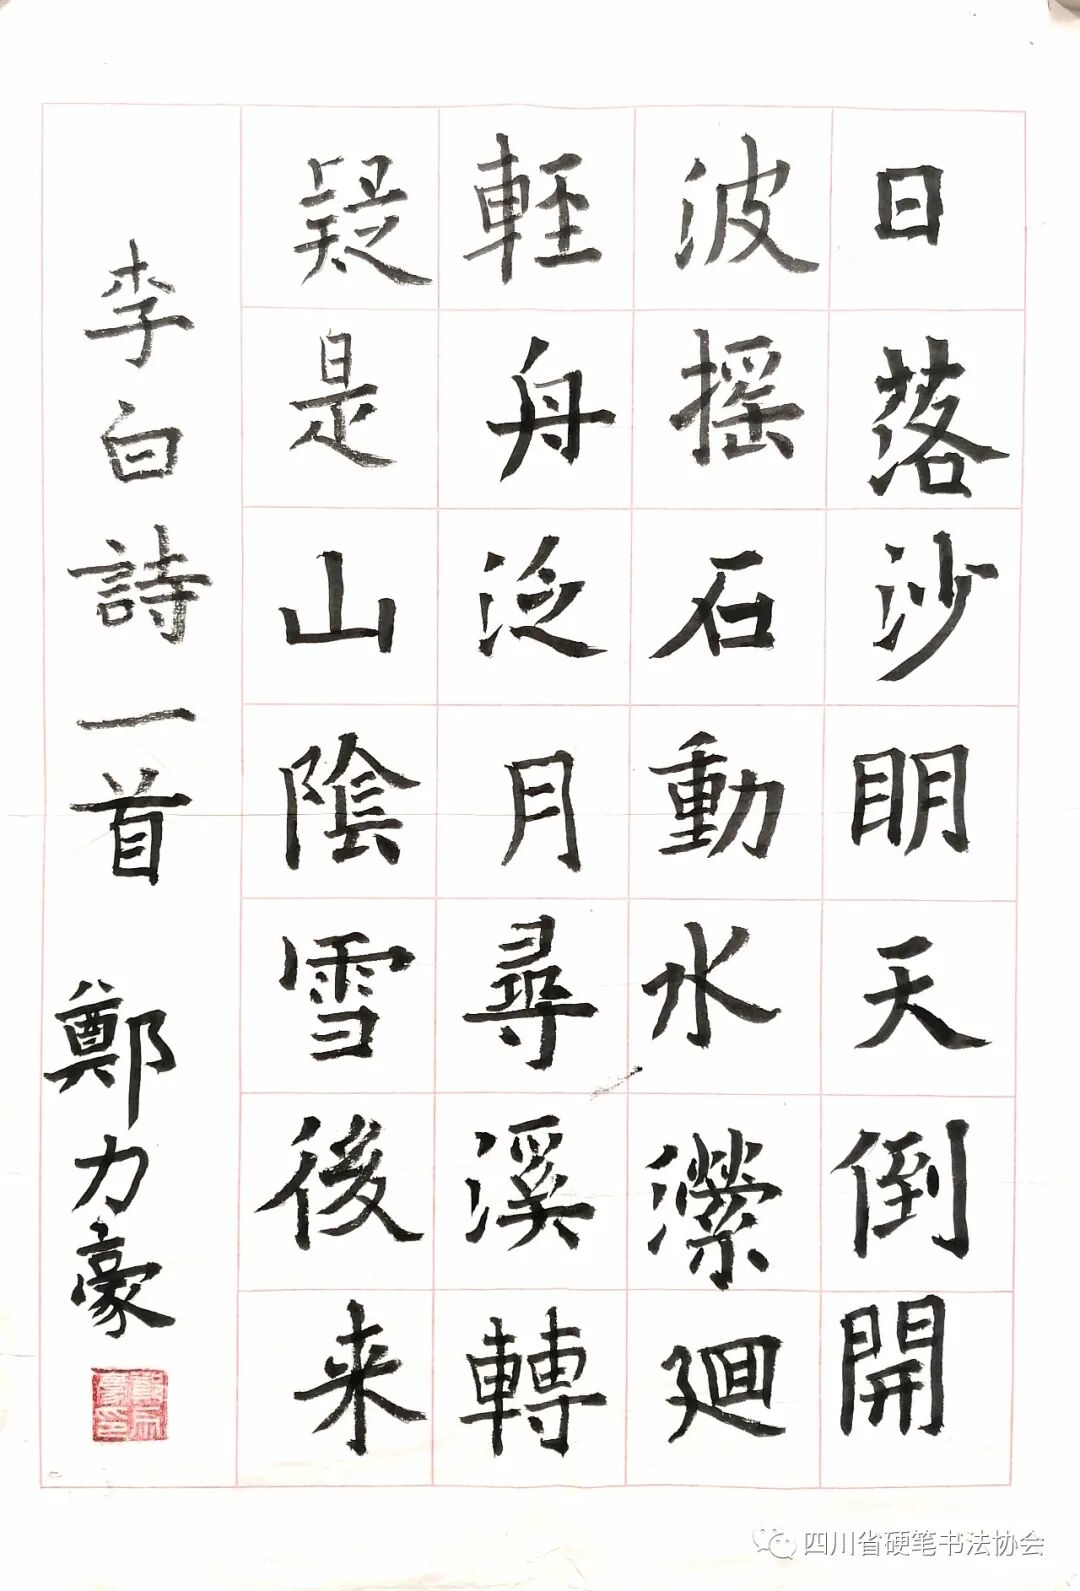 日落沙明天倒開
波摇石動水瀠廻
輕舟泛月尋溪轉
疑是山陰雪後来
李白詩一首 鄭力豪
四川省硬笔书法协会